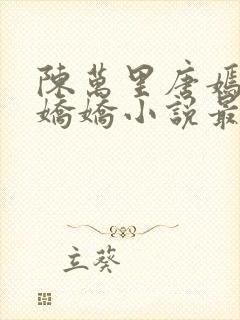 陳萬里唐嫣
嬌嬌小說最
立葵